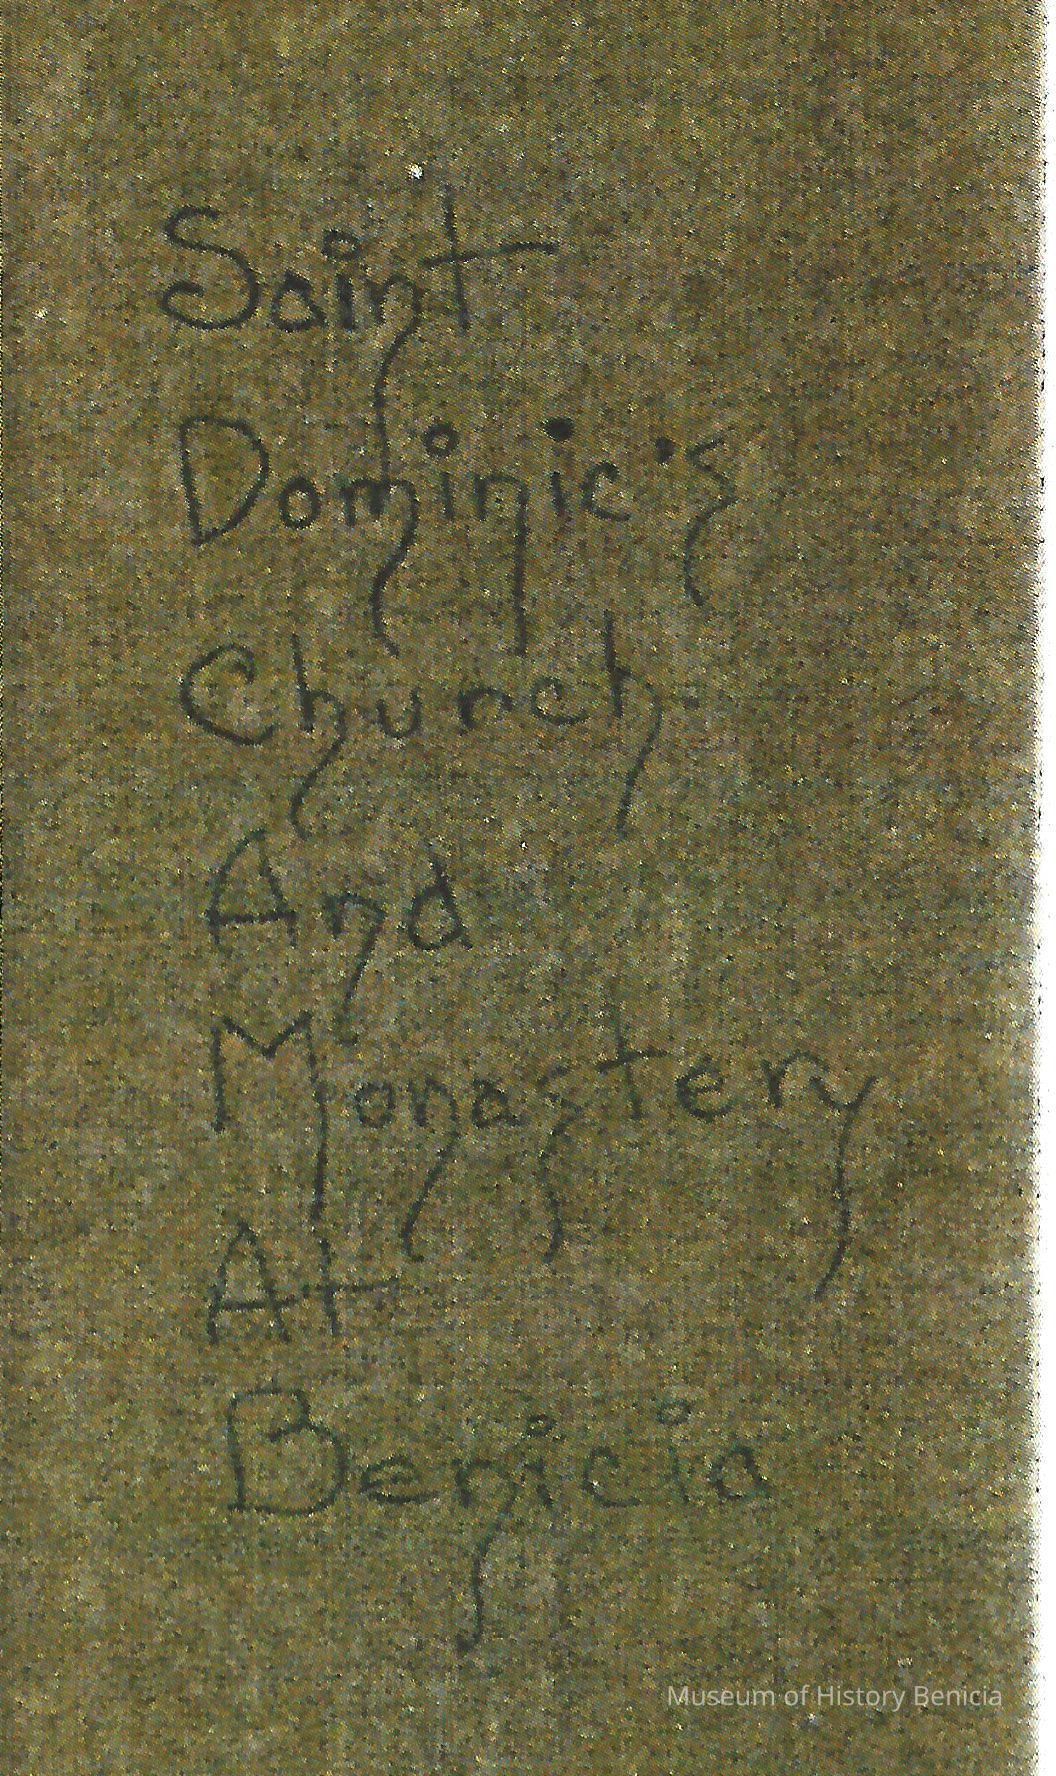 Saint
Dominic's
Church
And
Monastery
At
Benicia
Museum of History Benicia